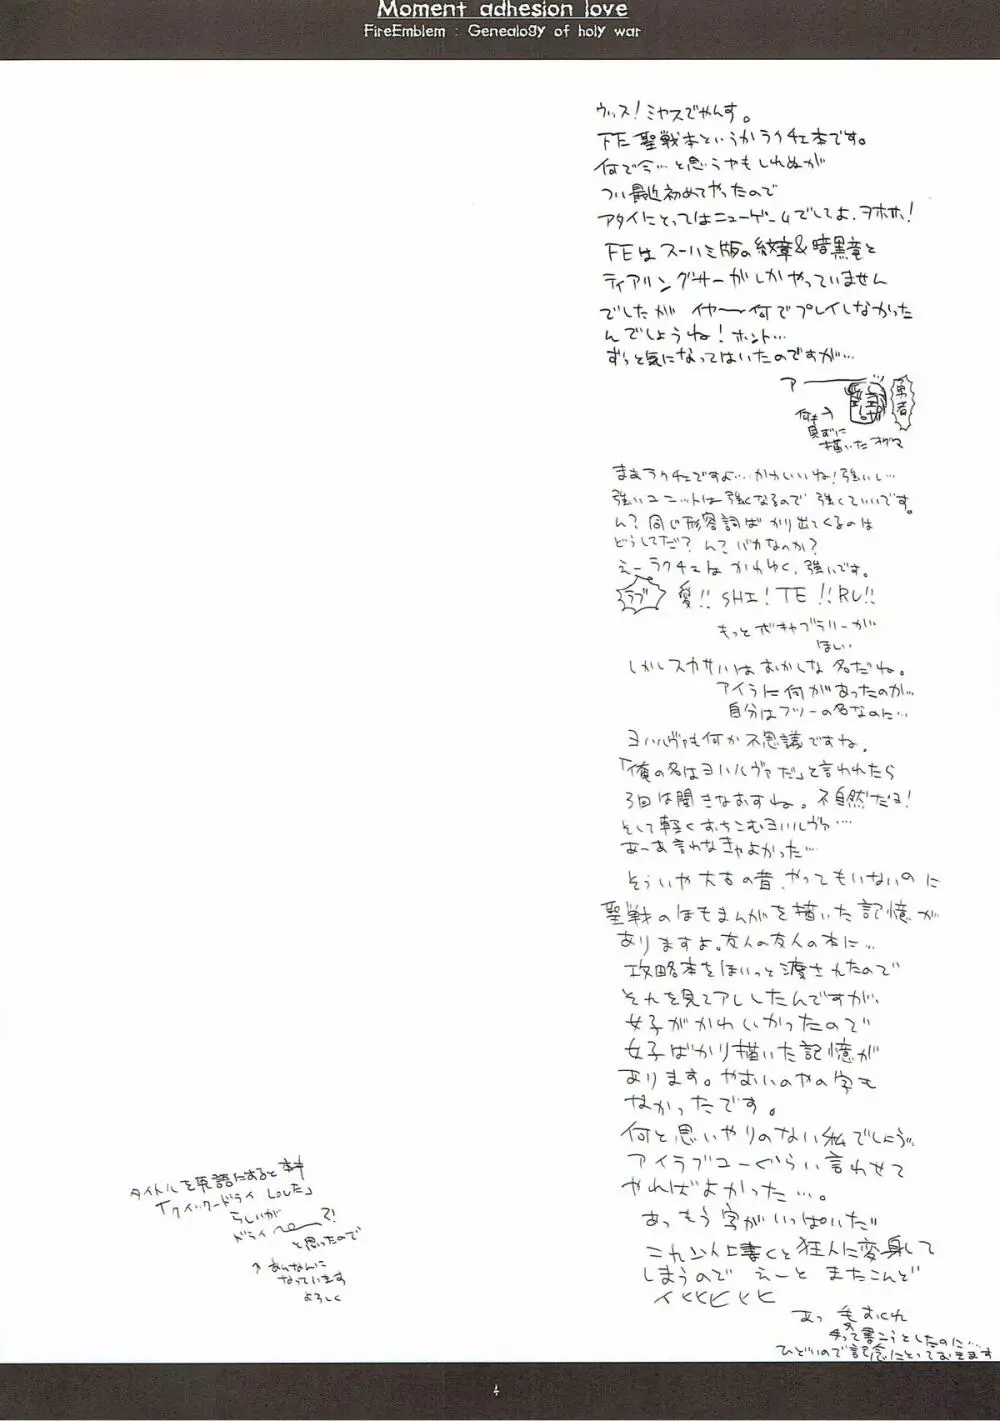 Moment adhesion love
FireEmblem : Genealogy of holy war
ウッス!ミヤスでやんす。
FE聖戦本というかラクチェ本です。
何で今…と思うやもしれぬが
つい最近初めてやったので
アタイにとってはニューゲームでしてよ、ヲホホ!
FEはスーハミ版の紋章&暗黒竜と
ティアリングサーがしかやっていません
でしたが イヤー何でプレイしなかった
んでしょうね!ホント…
ずっと気になってはいたのですが…
アー
勇者
何も
見ずに
描いたオグマ
まあラクチェですよ…かわいいね!強いし…
強いユニットは強くなるので強くていいです。
ん?同じ形容詞ばかり出てくるのは
どうしてだ?ん?バカなのか?
えーラクチェはかわゆく、強いです。
ラブ 愛!!SHI!TE!!RU!!
もっとボキャブラリーが
ほしい
しかしスカサハはおかしな名だね。
アイラに何があったのか…
自分はフツーの名なのに…
ヨハルヴァも何か不思議ですね。
「俺の名はヨハルヴァだ」と言われたら
3回は聞きなおすね。不自然だヨ!
そして軽くおちこむヨハルヴァ…
あーあ言わなきゃよかった…
そういや大古の昔、やってもいないのに
聖戦のほもまんがを描いた記憶が
ありますよ。友人の友人の本に…
攻略本をほいっと渡されたので
それを見てアレしたんですが、
女子がかわいかったので
女子ばかり描いた記憶が
あります。やおいのやの字も
なかったです。
何と思いやりのない私でしょう。
アイラブユーぐらい言わせて
やればよかった…。
あっもう字がいっぱいだ
これ以上書くと狂人に変身して
しまうので えーと またこんど
イヒヒヒヒヒ
あっ 愛おくれ
って書こうとしたのに…
ひどいので記念にとっておきます
タイトルを英語にすると本当
「クイックードライ Loveだ」
らしいが
ドライ〜?!
と思ったので
↑あんなんに
なっています
よろしく
4